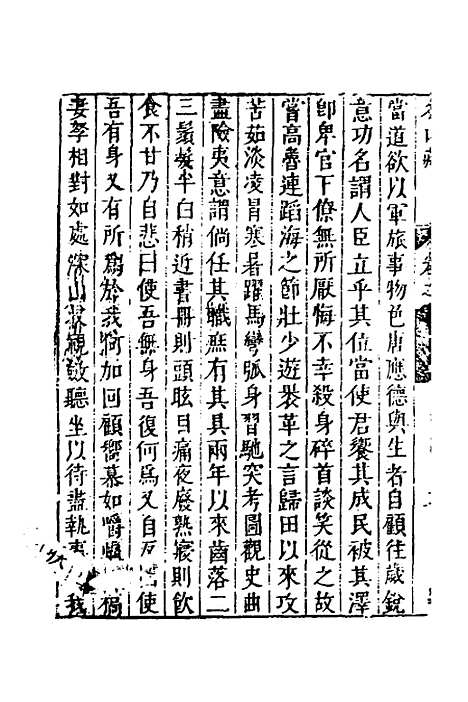 當道欲以軍旅事物色唐應德與生者自顧往歲銳
意功名謂人臣立乎其位當使君饗其成民被其澤
卽卑官下僚無所厭悔不幸殺身碎首談笑從之故
嘗高魯連蹈海之節壯少遊裹革之言歸田以來攻
苦茹淡凌冒寒暑躍馬彎弧身習馳突考圖觀史曲
盡險夷意謂倘任其職庶有其具兩年以來齒落二
三鬚髮半白稍近書冊則頭眩目痛夜廢熟寢則飲
食不甘乃自悲曰使吾無身吾復何爲又自反曰使
吾有身又有所爲於我何加回顧嚮慕如嚼
妻孥相對如處深山收視斂聽坐以待盡執事